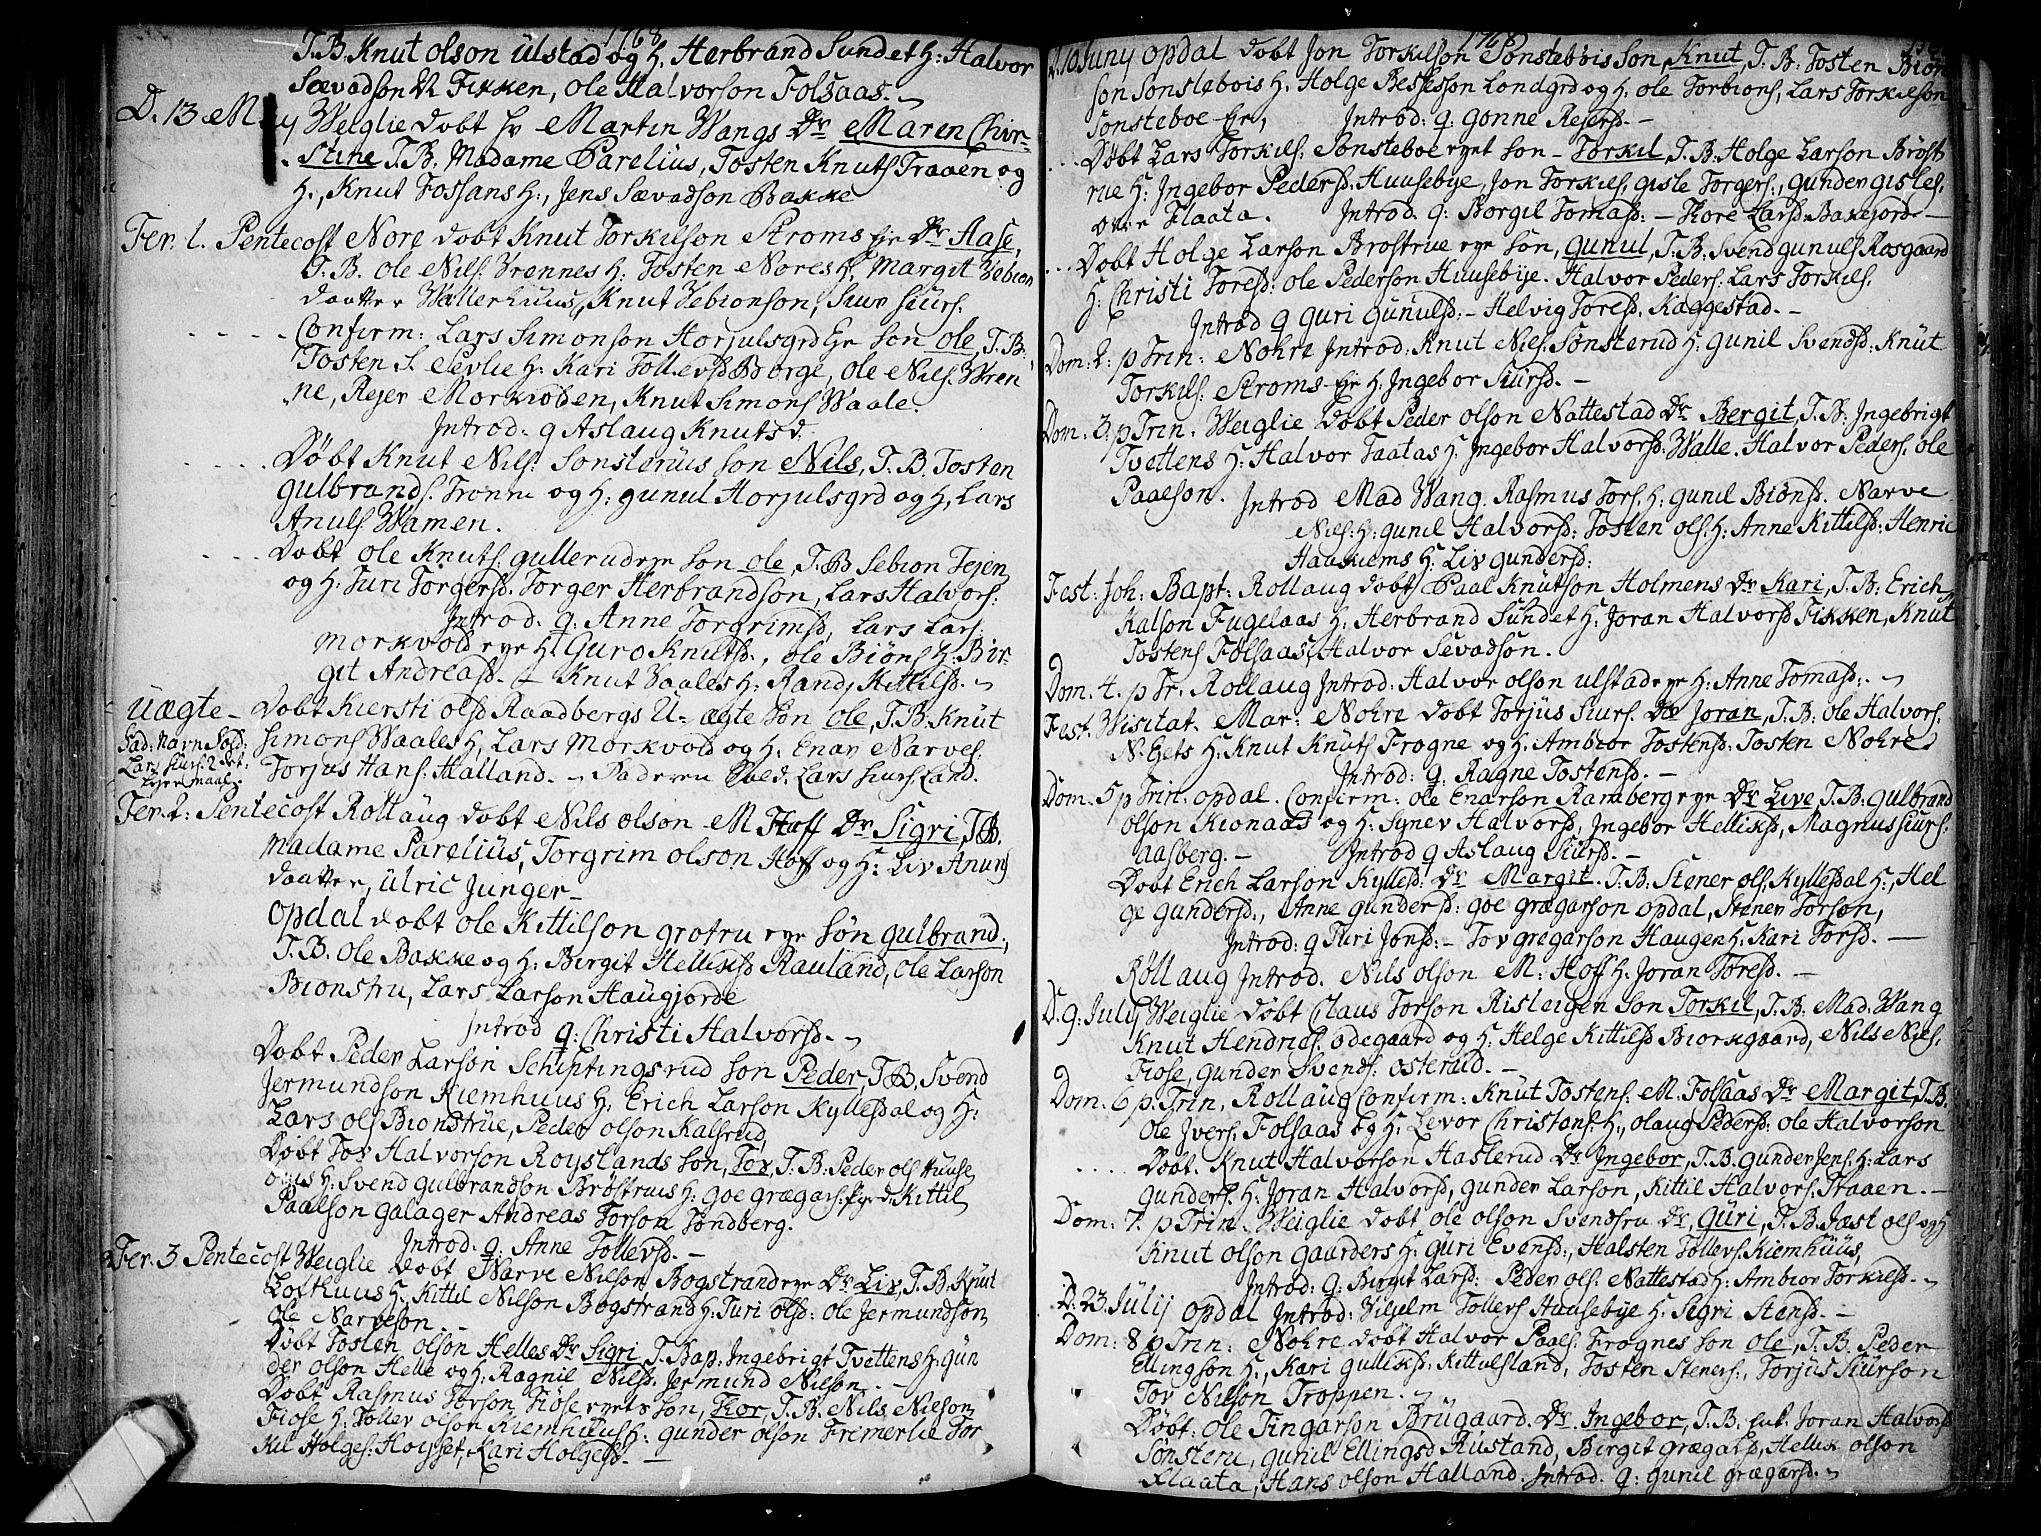 1768
T. B. Knut olson ülstad og H. Herbrand Sundet H: Halvor
Sævadson N Fikken, ole Halvorson Folsaas.
D. 13 May Weiglie Dobt Hr Martin Wangs Dr Maren Chir-
stine T. B. Madame Parelius, Tosten Knuts Traaen og
H., Knut Fossans H., Jens Sævadson Bakke
Fer. 1. Pentecost Nore dobt Knut Torkilson Stroms Eje Dr Aase,
T. B. ole Nils. Vrennes H: Tosten Nores H, Margit Vebion
daatter Wallerhuus, Knut Vebionson, Siur Siurs.
Confirm: Lars Simonson Horjulsgrd Eje son ole, T. B.
Tosten S. Sevlie H: Kari Tollevsd Borge, ole Nils. Wren
ne, Rejer Morkvolden, Knut Simons Waale.
Introd. q Aslaug Knutsd.
Döbt Knut Nils: Sonsteruus son Nils, T. B. Tosten
gulbrands. Tronne og H: gunul Horjulsgrd og H, Lars
Anuls Wamen.
Dobt ole Knuts. gullerud eye son ole, T. B Sebion Tejen
og H: Turi Torgersd. Torger Herbrandson, Lars Halvors.
Introd. q. Anne Torgrimsd, Lars Lars.
morkvold eye H. Guro Knutsd., ole Biöns H. Bir-
git Andreasd. - Knut Vaales H: Randj Kittilsd.
üægte - Dobt Kiersti olsd Raadbergs U-ægte son ole, T. B. Knüt
Simons Waales H, Lars Morkvold og H. Enar Narves.
Torjus Hans. Halland. - Faderen Sold. Lars Siurs. Land.
Fad: Navn Sold:
Lars Siurs. 2 det
Lejermaal.
Fer. 2: Pentecost Rollaug dobt Nils olson M Hoff Dr Sigri, T. B.
Madame Parelius, Torgrim olson Hoff og H: Liv Anuns
daatter, ülric Junger -
Opdal dobt ole Kittilson grotru eye sön gulbrand,
T. B. ole Bakke og H: Birgit Helliksd Rauland, ole Larson
Bionstru, Lars Larson Haugjorde
Introd q: Christi Halvorsd. -
Dobt Peder Larson Schiftingsrud son Peder, T. B. Svend
Jermundson Kiemhuus H: Erich Larson Kyllesdal og H:
Lars ols Biondtrüe, Peder olson Kalsrud,
Döbt Tov Halvorson Roystands son, Tov, T. B. Peder ols Huuse
byes H: Svend gulbrandson Bröstrues H: goe grægars: Kittil
Paalson galager Andreas Torson Tondberg.
Introd. q: Anne Tollevsd. -
Fer. 3 Pentecost Weiglie dobt Narve Nilson Bogstrand eye Dr Liv, T. B. Knut
Lofthuus H: Kittil Nilson Bogstrand H: Turi olsd: ole Jermundson
ole Narveson. -
Döbt Tosten olson Helles Dr Sigri T. Bap: Ingebrigt Tvettens H: gün
der olson Helle og H: Ragnil Nilsd. Jermund Nilson. -
Dobt Rasmus Torson Fiose eyets son, Thor, T. B. Nils Nielson
Fiose H: Tollev olson Kiemhuus H: gunder olson Fremerlie Tor
kil Holges: Hoyset, Kari Holgesd. -
1768
D. 10 Juny Opdal dobt Jon Torkilson Sönstebois son, Knut, T. B: Tosten Biön
son Sonstebois H: Holge Bessesson Londgrd og H: ole Torbions, Lars Torkilson
Sönsteboe Eje, Introd: q: gonne Rejersd. -
Döbt Lars Torkils. Sonsteboe eyet son - Torkil, T. B: Holge Larson Bröst
rue H: Ingebor Pedersd. Huusebye, Jon Torkils, gisle Torgers., gunder gisles.
övre Flaata. Introd. q: Borgil Tomasd: - Tore Larsd. Bakejord -
Dobt Holge Larson Brostrue eye sön, gunul, T. B. Svend gunuls Rosgaard
H: Christi Toresd: ole Pederson Huusebye. Halvor Peders. Lars Torkils.
Introd q Guri Gunulsd: - Helvig Toresd. Kaggestad. -
Dom: 2: p Trin: Nohre Introd: Knut Niels. Sonsterud H: gunil Svendsd: Knüt
Torkils: Stroms-Eje H: Ingebor Siürsd. -
Dom: 3. p Trin. Weiglie Dobt Peder olson Nattestad Dr Bergit, T. B: Ingebrigt
Tvettens H: Halvor Taatas H: Ingebor Halvorsd: Walle. Halvor Peders. ole
Paalson. Introd Mad Wang. Rasmus Tors. H: gunil Biönsd. Narve
Niels. H: gunil Halvorsd: Tosten ols. H: Anne Kittilsd: Henric
Haaskiems H: Liv gundersd:
Fest: Joh: Bapt: Rollaug dobt Paal Knütson Holmens Dr Kari, T. B: Erich
Kalson Fugelaas H: Herbrand Sündet H: Joran Halvorsd Fikken, Knut
Tostens Fölsaas, Halvor Sevadson.
Dom. 4. p Tr. Rollaug Introd: Halvor olson ülstad eye H: Anne Tomasd:. -
Fest. Visitat. Mar: Nohre dobt Torjüs Siurs. Dr Joran, T. B: ole Halvors.
N. Gets H: Knut Knüts Frogne og H: Ambior Tostensd: Tosten Nohre
Introd: q. Ragne Tostensd. -
Dom. 5 p Trin: opdal. Confirm: ole Enarson Ramberg eye Dr Live, T. B. gulbrand
olson Kionaas og H: Synev Halvorsd, Ingebor Helliksd, Magnus Siurs.
aasberg. - Introd q Aslaug Siursd. -
Dobt Erich Larson Kyllesd: Dr Margit. T. B: Stener ols Kyllesdal H:, Hel
ge gundersd:, Anne gundersd: goe grægarson opdal, Stener Torson,
Introd: q Turi Jonsd: - Tov gregarson Haugen H: Kari Torsd. -
Röllaug Introd. Nils olson M: Hoff H: Joran Toresd. -
D. 9: July Weiglie Döbt Claus Torson Risteigen son Torkil, T. B: Mad: Wang
Knut Hendrics. ödegaard og H: Helge Kittilsd Biorkgaard, Nils Niels.
Fiose, gunder Svends. österud. -
Dom. 6 p. Trin. Rollaug Confirm: Knüt Tostens. M. Folsaas Dr Margit, T. B.
ole Jvers. Folsaas og H: Levor Christens. H:, olaug Pedersd: ole Halvorson
Dobt. Knut Halvorson Haslerud Dr. Ingebor, T. B. gunder Jens. H: Lars
gunders. H: Joran Halvorsd, gunder Larson, Kittil Halvors. Traaen. -
Dom: 7. p Trin. Weiglie dobt ole olson Svendsru Dr, Güri, T. B. Jæst ols og H
Knut olson Gaurders H: Güri Evensd:, Halsten Tollevs. Kiemhüüs,
Introd: q: Birgit Larsd: Peder ols. Nattestad H: Ambior Torkilsd. -
D: 23. Julij opdal Introd: Vilhelm Tollevs Huusebye H: Sigri Stensd. -
Dom: 8 p Trin: Nohre dobt Halvor Paals. Frognes son ole, T. B. Peder
Ellingson H:, Kari gulliksd: Kittilsland, Tosten Steners:, Torjus Siurson
Tov Nilson Troppen.
Döbt: ole Tingarson Brügaard Dr. Ingebor, T. B. Lut. Joran Halvorsd
Sonsteru, gunil Ellingsd Rüstand, Birgit grægarsd, Hellik olson
Flaata, Hans olson Halland. Introd. q: gunil grægarsd.